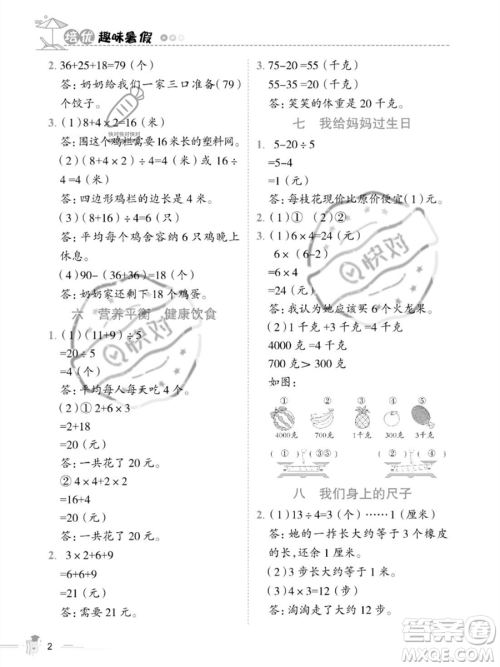 培优 趣味暑假
2. 36+25+18=79（个）
答：奶奶给我们一家三口准备（79）
个饺子。
1.（1）（8+4）×2=16（米）
答：围这个鸡栏需要 16 米长的塑料网。
（2）（8+4+8+4）÷4 或 16÷
4=4（米）
答：四边形鸡栏的边长是 4 米。
（3）（24+18）÷7=6（个）
答：平均每个鸡舍容纳 6 只鸡晚上
休息。
（4）90-（36+36）=18（个）
答：奶奶家还剩下 18 个鸡蛋。
六 营养平衡 健康饮食
1.（1）（11+9）÷5
=20÷5
=4（个）
答：平均每人每天吃 4 个。
（2）① 2+6×3
=2+18
=20（元）
答：一共花了 20 元。
② 4×2×4
=16+4
=20（元）
答：一共花了 20 元。
2. 3×2+6+9
=6+6+9
=21（元）
答：需要 21 元。
3. 75-20=55（千克）
55-35=20（千克）
答：笑笑的体重是 20 千克。
七 我给妈妈过生日
1. 5-20÷5
=5-4
=1（元）
答：每枝花现价比原价便宜（1）元。
2.（1）① （2）②
3.（1）6×4=24（元）
6×（6-2）
=6×4
=24（元）
答：我带的钱可以买 6 个火龙果。
（2）1 千克 =1000 克
4000 克 =4 千克
700 克 > 300 克
如图：
① ② ③ ④
4000克 700克 1千克 2千克
（ ① ）（ ） （ ）（ ② ）
八 我们身上的尺子
1.（1）13÷4=3（个）……1（厘米）
答：她的一拃长大约等于 3 个橡皮
的长，还剩下 1 厘米。
（2）1 米 =100 厘米
答：她的一步大约是 1 米。
（3）（2）步
答：淘淘走了大约 1 米。
2
快对
快对
答案圈
MXQE.COM